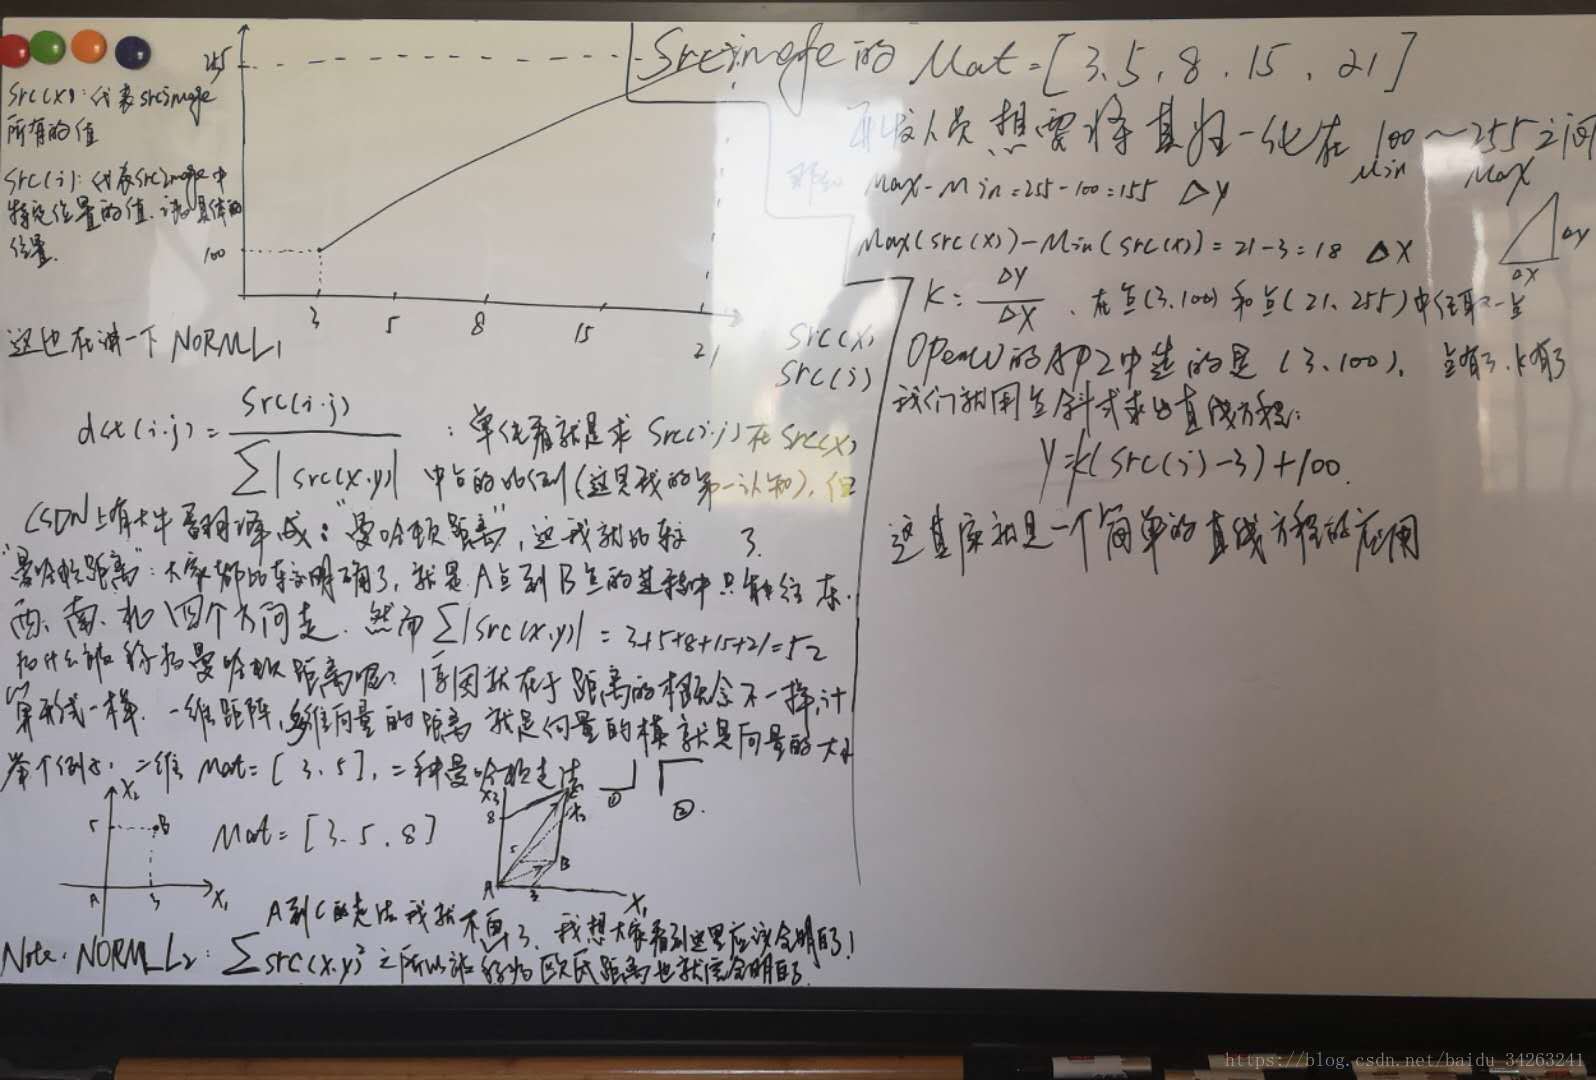 Src(x): 代表srcimage
所有的值
Src(i): 代表srcimage中
特定位置的值.
位置.
255
100
3 5 8 15 21
Src(x)
Src(i)
Srcimage的 Mat=[3、5、8、15、21]
开发人员想要将其归一化在 100～255之间
Min Max
Max-Min=255-100=155 ΔY
Max(src(x))-Min(src(x))=21-3=18 ΔX
ΔY
ΔX
K=ΔY/ΔX、在点(3.100)和点(21、255)中任取一点
OpenCV的API中选的是(3、100)、点有了、K有了
我们就用点斜式求出直线方程:
Y=K(src(i)-3)+100.
这其实就是一个简单的直线方程的应用
这也在讲一下NORM_L1
dst(i.j)=Src(i.j)/∑|src(x.y)| : 单纯看就是求Src(i.j)在src(x)
中占的比例(这是我的第一认知)、但
CSDN上有大牛翻译成:"曼哈顿距离", 这我就比较 了.
"曼哈顿距离": 大家都比较明确了, 就是A点到B点的 中只能往东.
西、南、北四个方向走. 然而∑|src(x.y)|=3+5+8+15+21=52
为什么被称为曼哈顿距离呢? 原因就在于距离的概念不一样,计
算形式一样. 一维矩阵,多维向量的距离就是向量的模就是向量的大小
举个例子: 二维Mat=[3、5], 二种曼哈顿走法
① ②
X2
5 B
A 3 X1
Mat=[3.5、8]
X3
8
5
B
A 3
X1
A到C的走法我就不画了、我想大家看到这里应该会明白了!
Note: NORM_L2: ∑src(x.y)²之所以被称为欧氏距离也就完全明白了.
https://blog.csdn.net/baidu_34263241